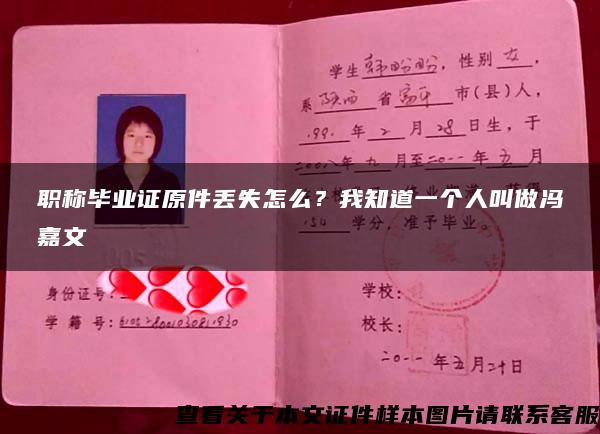 学生韩盼盼，性别女，
系陕西省富平市(县)人，
199 年2月28日生，于
二00八年九月至二0一一年五月
职称毕业证原件丢失怎么？我知道一个人叫做冯
嘉文
154学分，准予毕业。
身份证号：
学籍号：
学校：
校长：
二0一一年五月二十日
查看关于本文证件样本图片请联系客服